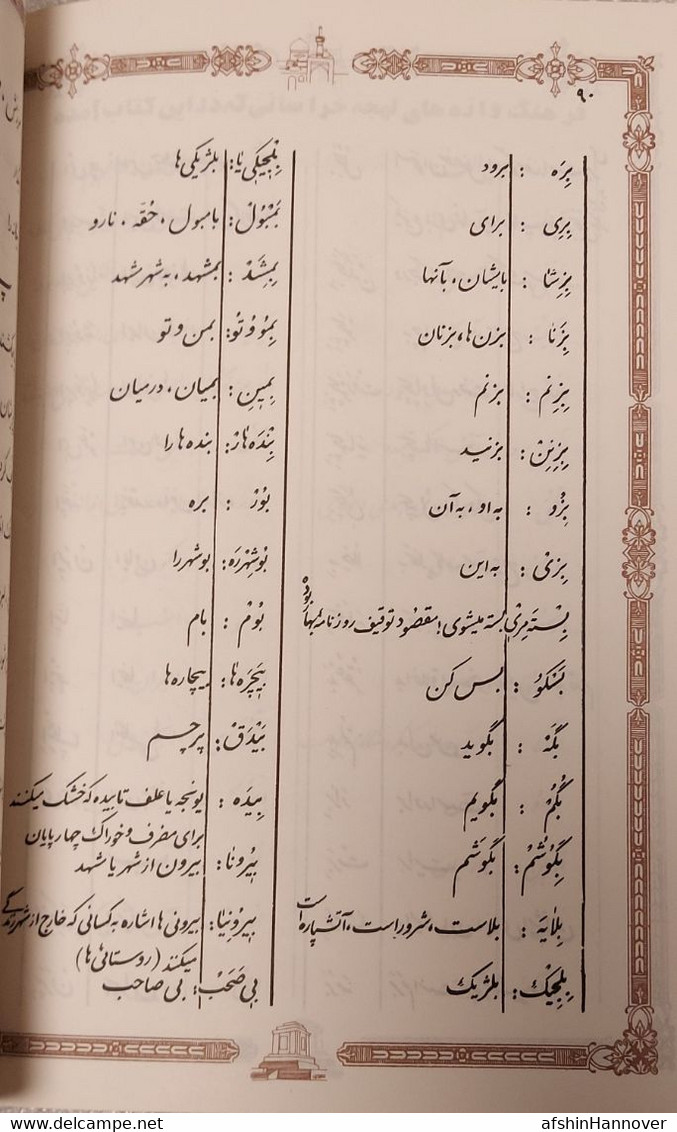 ۹۰
بِرَه : برود
بِرِی : برای
بِزِشا : بایشان، بآنها
بِزَنا : بزن ها، بزنان
بِزِنِم : بزنم
بِزِنِنْ : بزنید
بِزُو : به او، به آن
بِزیٰ : به این
بِسْتَه مِریٰ بسته میشوی! مقصود توقیف روزنامه بهار بوده
بَسْکُو : بس کن
بِگَهْ : بگوید
بُگُمْ : بگویم
بِگُوشُمْ : بگوشم
بِلایَه : بلاست، شروراست، آتشپاره است
بِلجِیکْ : بلژیک
بِلجیکی یا : بلژیکی ها
بَمْبُولْ : بامبول، حُقّه، نارو
بِمِشَدْ : بمشهد، به شهر شهد
بِمُو وُ تُو : بمن و تو
بِمِین : بمیان، در میان
بِنْدَه هارْ : بنده ها را
بُوزْ : بره
بُوشِهْرَه : بوشهر را
بُومْ : بام
بیچَرَه ها : بیچاره ها
بَیْدَقْ : پرچم
بیدَه : یونجه یا علف تابیده که خشک میکنند
برای مصرف و خوراک چهارپایان
بیرُونا : بیرون از شهر یا شهد
بیرُونیا : بیرونی ها اشاره به کسانی که خارج از شهر زندگی
میکنند (روستائی ها)
بی صَحَبْ : بی صاحب
afshinHannover